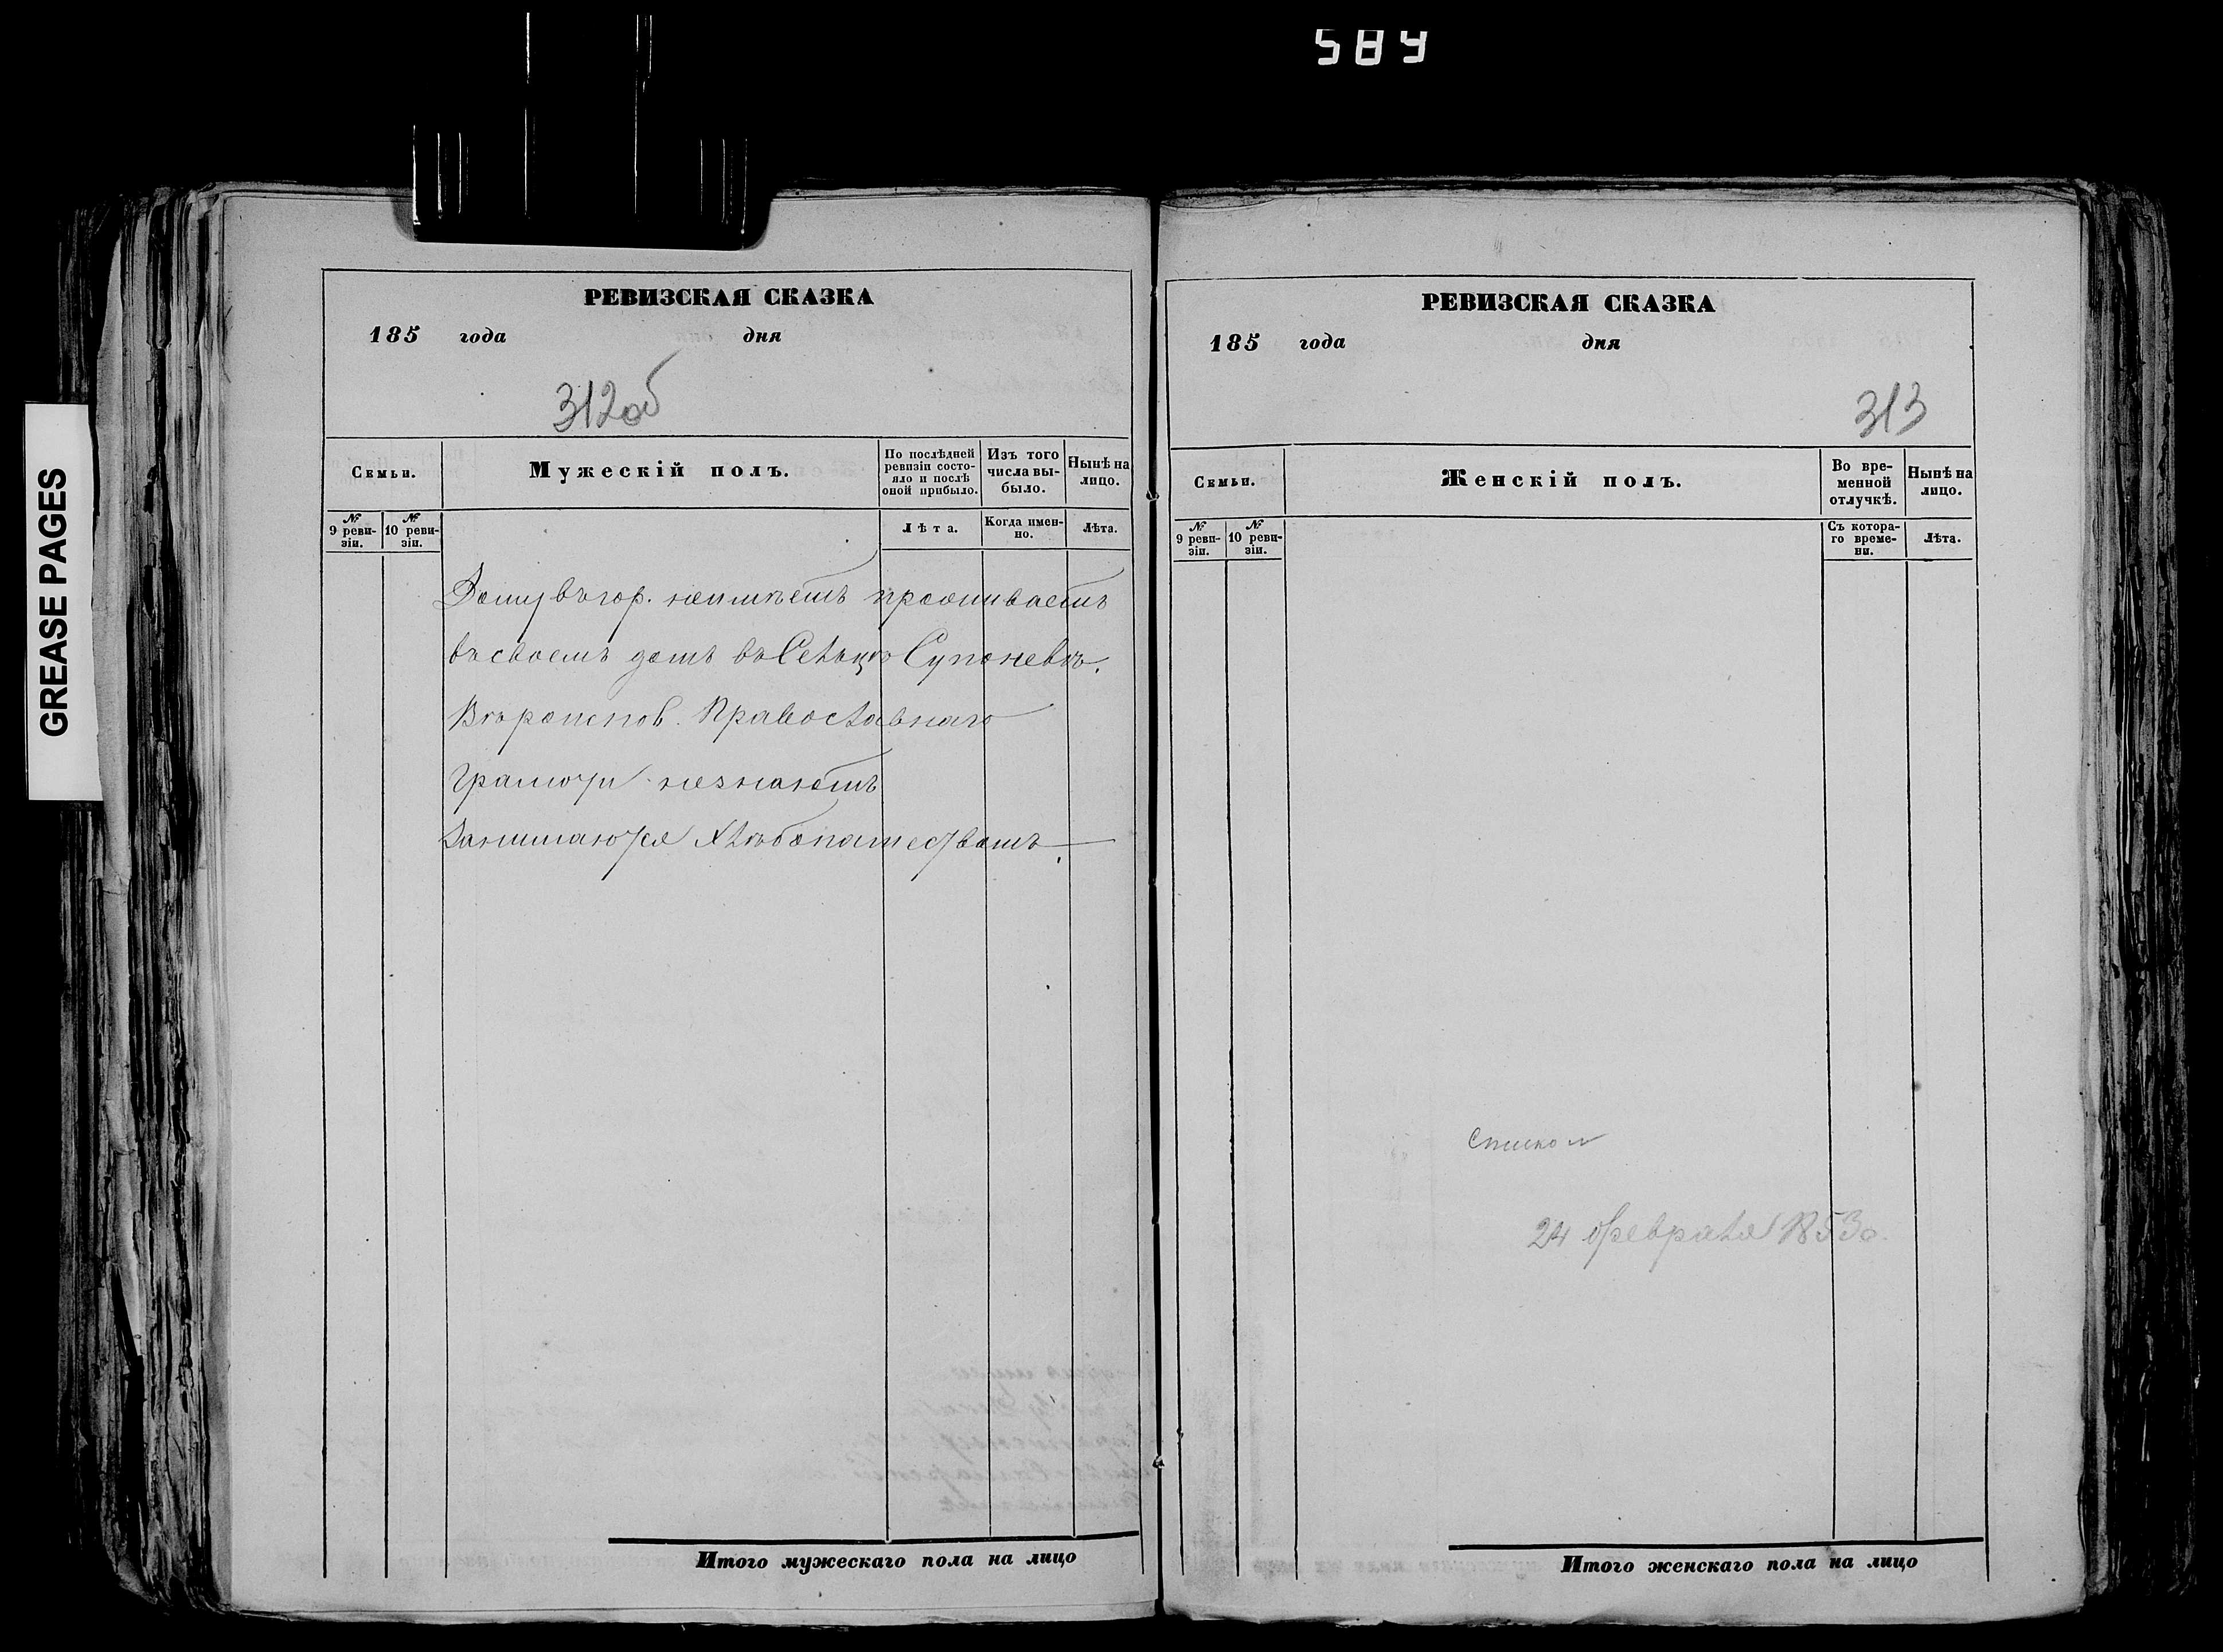 589
GREASE PAGES
РЕВИЗСКАЯ СКАЗКА
185 года дня
312об
Семьи.
Мужескій полъ.
По послѣдней ревизіи состо-
яло и послѣ
оной прибыло.
Изъ того
числа вы-
было.
Нынѣ на
лицо.
№
9 реви-
зіи.
№
10 реви-
зіи.
Лѣта.
Когда имен-
но.
Лѣта.
Дому въ гор. неимѣетъ проживаетъ
въ своемъ домѣ въ Сельцѣ Супоневѣ.
Вѣроиспов. Православнаго
Грамоти незнаютъ
Занимаются хлѣбопашествомъ.
Итого мужескаго пола на лицо
РЕВИЗСКАЯ СКАЗКА
185 года дня
313
Семьи.
Женскій полъ.
Во вре-
менной
отлучкѣ.
Нынѣ на
лицо.
№
9 реви-
зіи.
№
10 реви-
зіи.
Съ котора-
го време-
ни.
Лѣта.
24 Февраля 1853
Итого женскаго пола на лицо